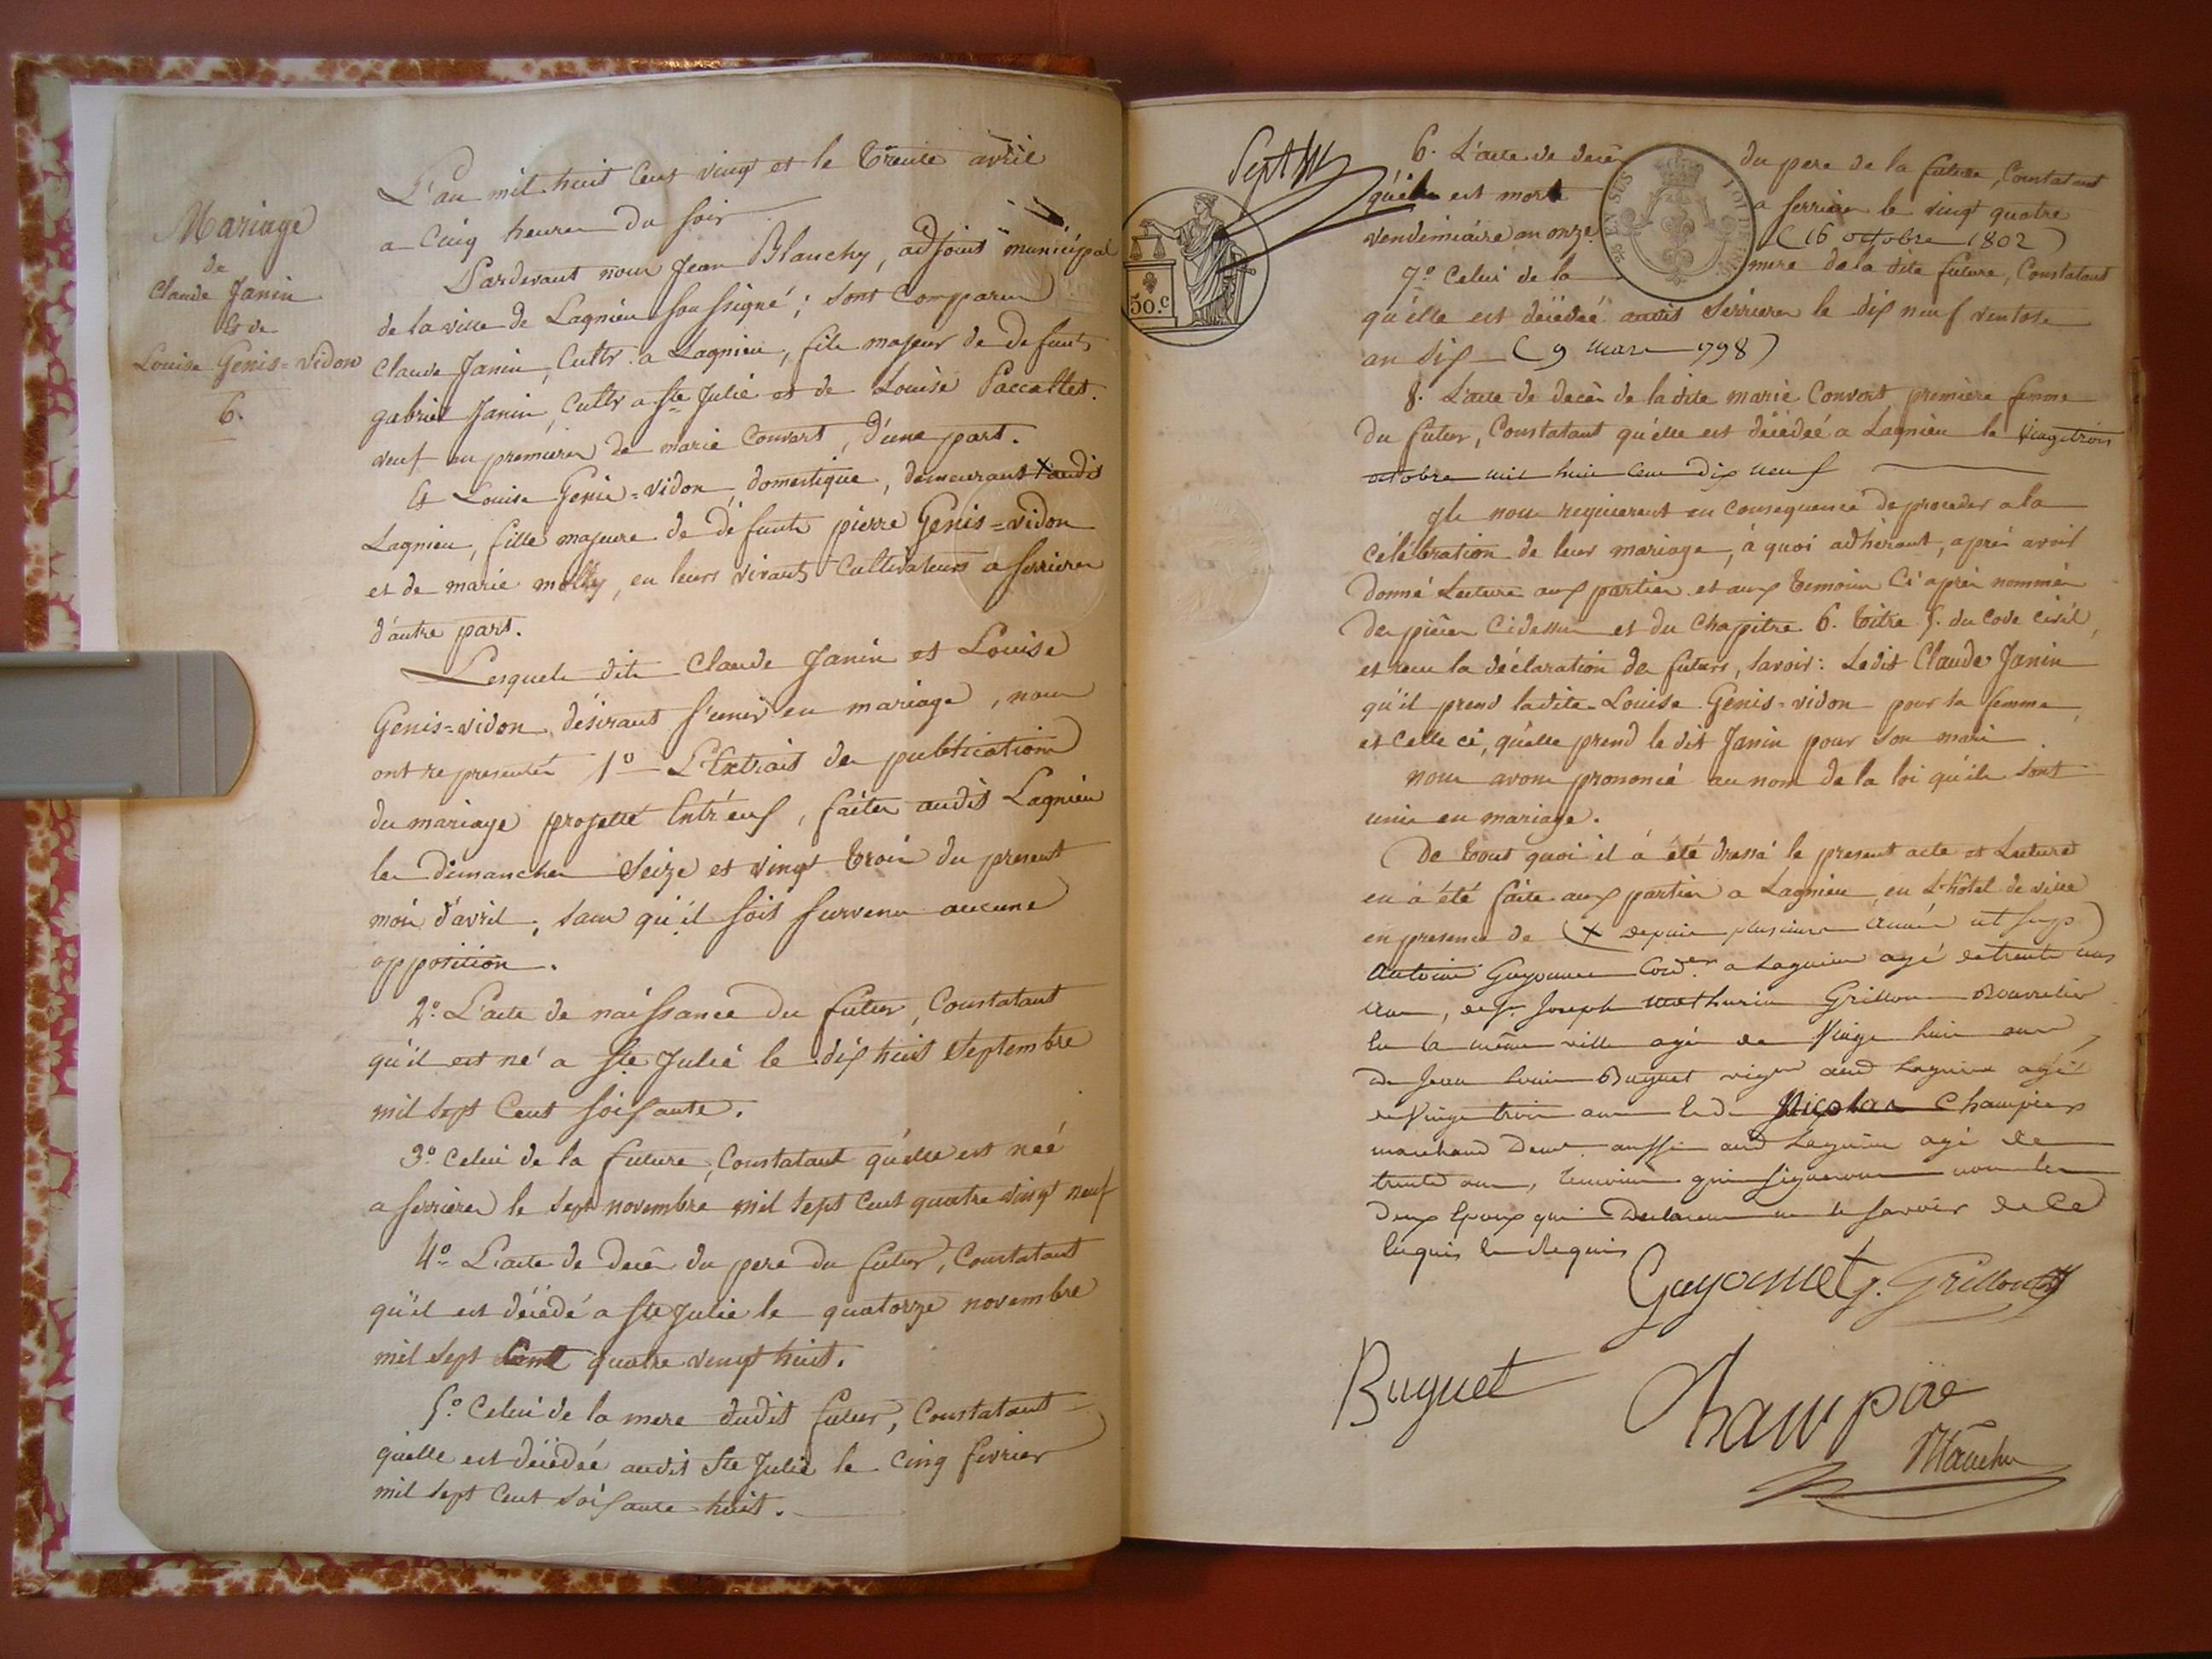 Mariage
de
Claude Janin
Et de
Louise Genis=vidon
6.
L'an mil huit Cent vingt et le trente avril
a Cinq heures du soir
Pardevant nous Jean Blanchy, adjoint municipal
de la ville de Lagnieu soussigné; sont Comparus
Claude Janin, Cultr. a Lagnieu, fils majeur de defunts
gabriel Janin, Cultr a Ste Julie et de Louise Paccallet.
veuf en premieres de marie Convert, d'une part.
Et Louise Genis=vidon, domestique, demeurant X audit
Lagnieu, fille majeure de défunts pierre Genis=vidon
et de marie molly, en leurs vivants Cultivateurs a serrieres
d'autre part.
Lesquels dits Claude Janin et Louise
Genis=vidon, désirant s'unir en mariage, nous
ont representés 1o L'Extrait des publications
du mariage projetté Entr'eux, faites audit Lagnieu
les dimanches Seize et vingt trois du present
mois d'avril, sans qu'il soit survenu aucune
opposition.
2o. L'acte de naissance du futur, Constatant
qu'il est né a Ste Julie le dix huit Septembre
mil sept Cent soixante.
3o. Celui de la future, Constatant qu'elle est née
a serrieres le sept novembre mil sept Cent quatre vingt neuf
4o. L'acte de decès du pere du futur, Constatant
qu'il est décédé a Ste Julie le quatorze novembre
mil sept Cent quatre vingt huit.
5o. Celui de la mere dudit futur, Constatant
qu'elle est décédée audit Ste Julie le Cinq fevrier
mil sept Cent soixante huit.
Sept
50.c
EN SUS
6. L'acte de decès du pere de la future, Constatant
qu'il est mort a serrieres le vingt quatre
vendemiaire an onze (16 octobre 1802)
7o. Celui de la mere de la dite future, Constatant
qu'elle est décédée audit Serrieres le dix neuf ventose
an six (9 mars 1798)
8. L'acte de decès de la dite marie Convert premiere femme
du futur, Constatant qu'elle est décédée a Lagnieu le vingt trois
octobre mil huit cent dix neuf
Ils nous requierent en consequence de proceder a la
célébration de leur mariage, à quoi adhérant, après avoir
donné Lecture aux parties et aux temoins Ci après nommés
des pièces Cidessus et du Chapitre 6. titre 5. du Code Civil,
et recu la déclaration des futurs, savoir: Ledit Claude Janin
qu'il prend ladite Louise Genis=vidon pour sa femme,
et Celle ci, qu'elle prend le dit Janin pour son mari
nous avons prononcé au nom de la loi qu'ils sont
unis en mariage.
De tout quoi il a été dressé le present acte et Lecture
en a été faite aux parties a Lagnieu, en L'hôtel de ville
en presence de (X depuis plusieurs années ut sup)
antoine Guyonnet a Lagnieu agé de trente
de Sr. Joseph mathurin Grillon Bourrelier
En la même ville agé de Vingt huit ans
de Jean Louis Buguet aud Lagnieu agé
de Vingt trois ans et de Nicolas Champier
marchand aussi aud Lagnieu agé de
trente ans, temoins qui signeront non les
deux Epoux qui Declarent ne le savoir de Ce
Enquis et Requis
Guyonnet J. Grillon
Buguet
Champire
Blanchy